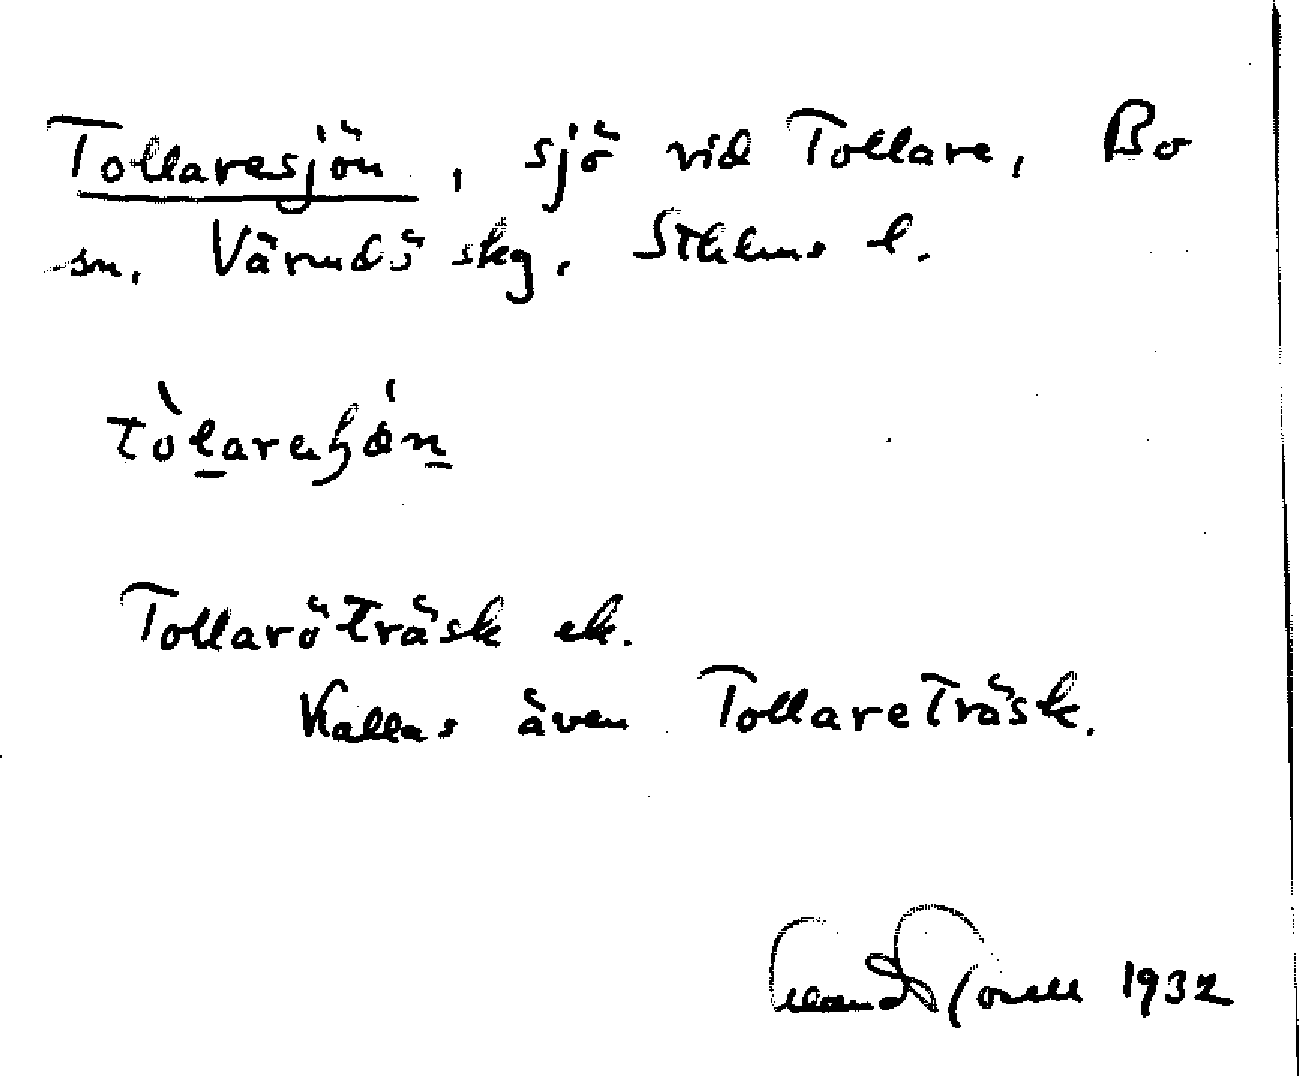 Tollaresjön, sjö vid Tollare, Bo
sn. Värmdö skg. Sthlms l.
Tollaröträsk ek.
Kallas även Tollareträsk.
1932